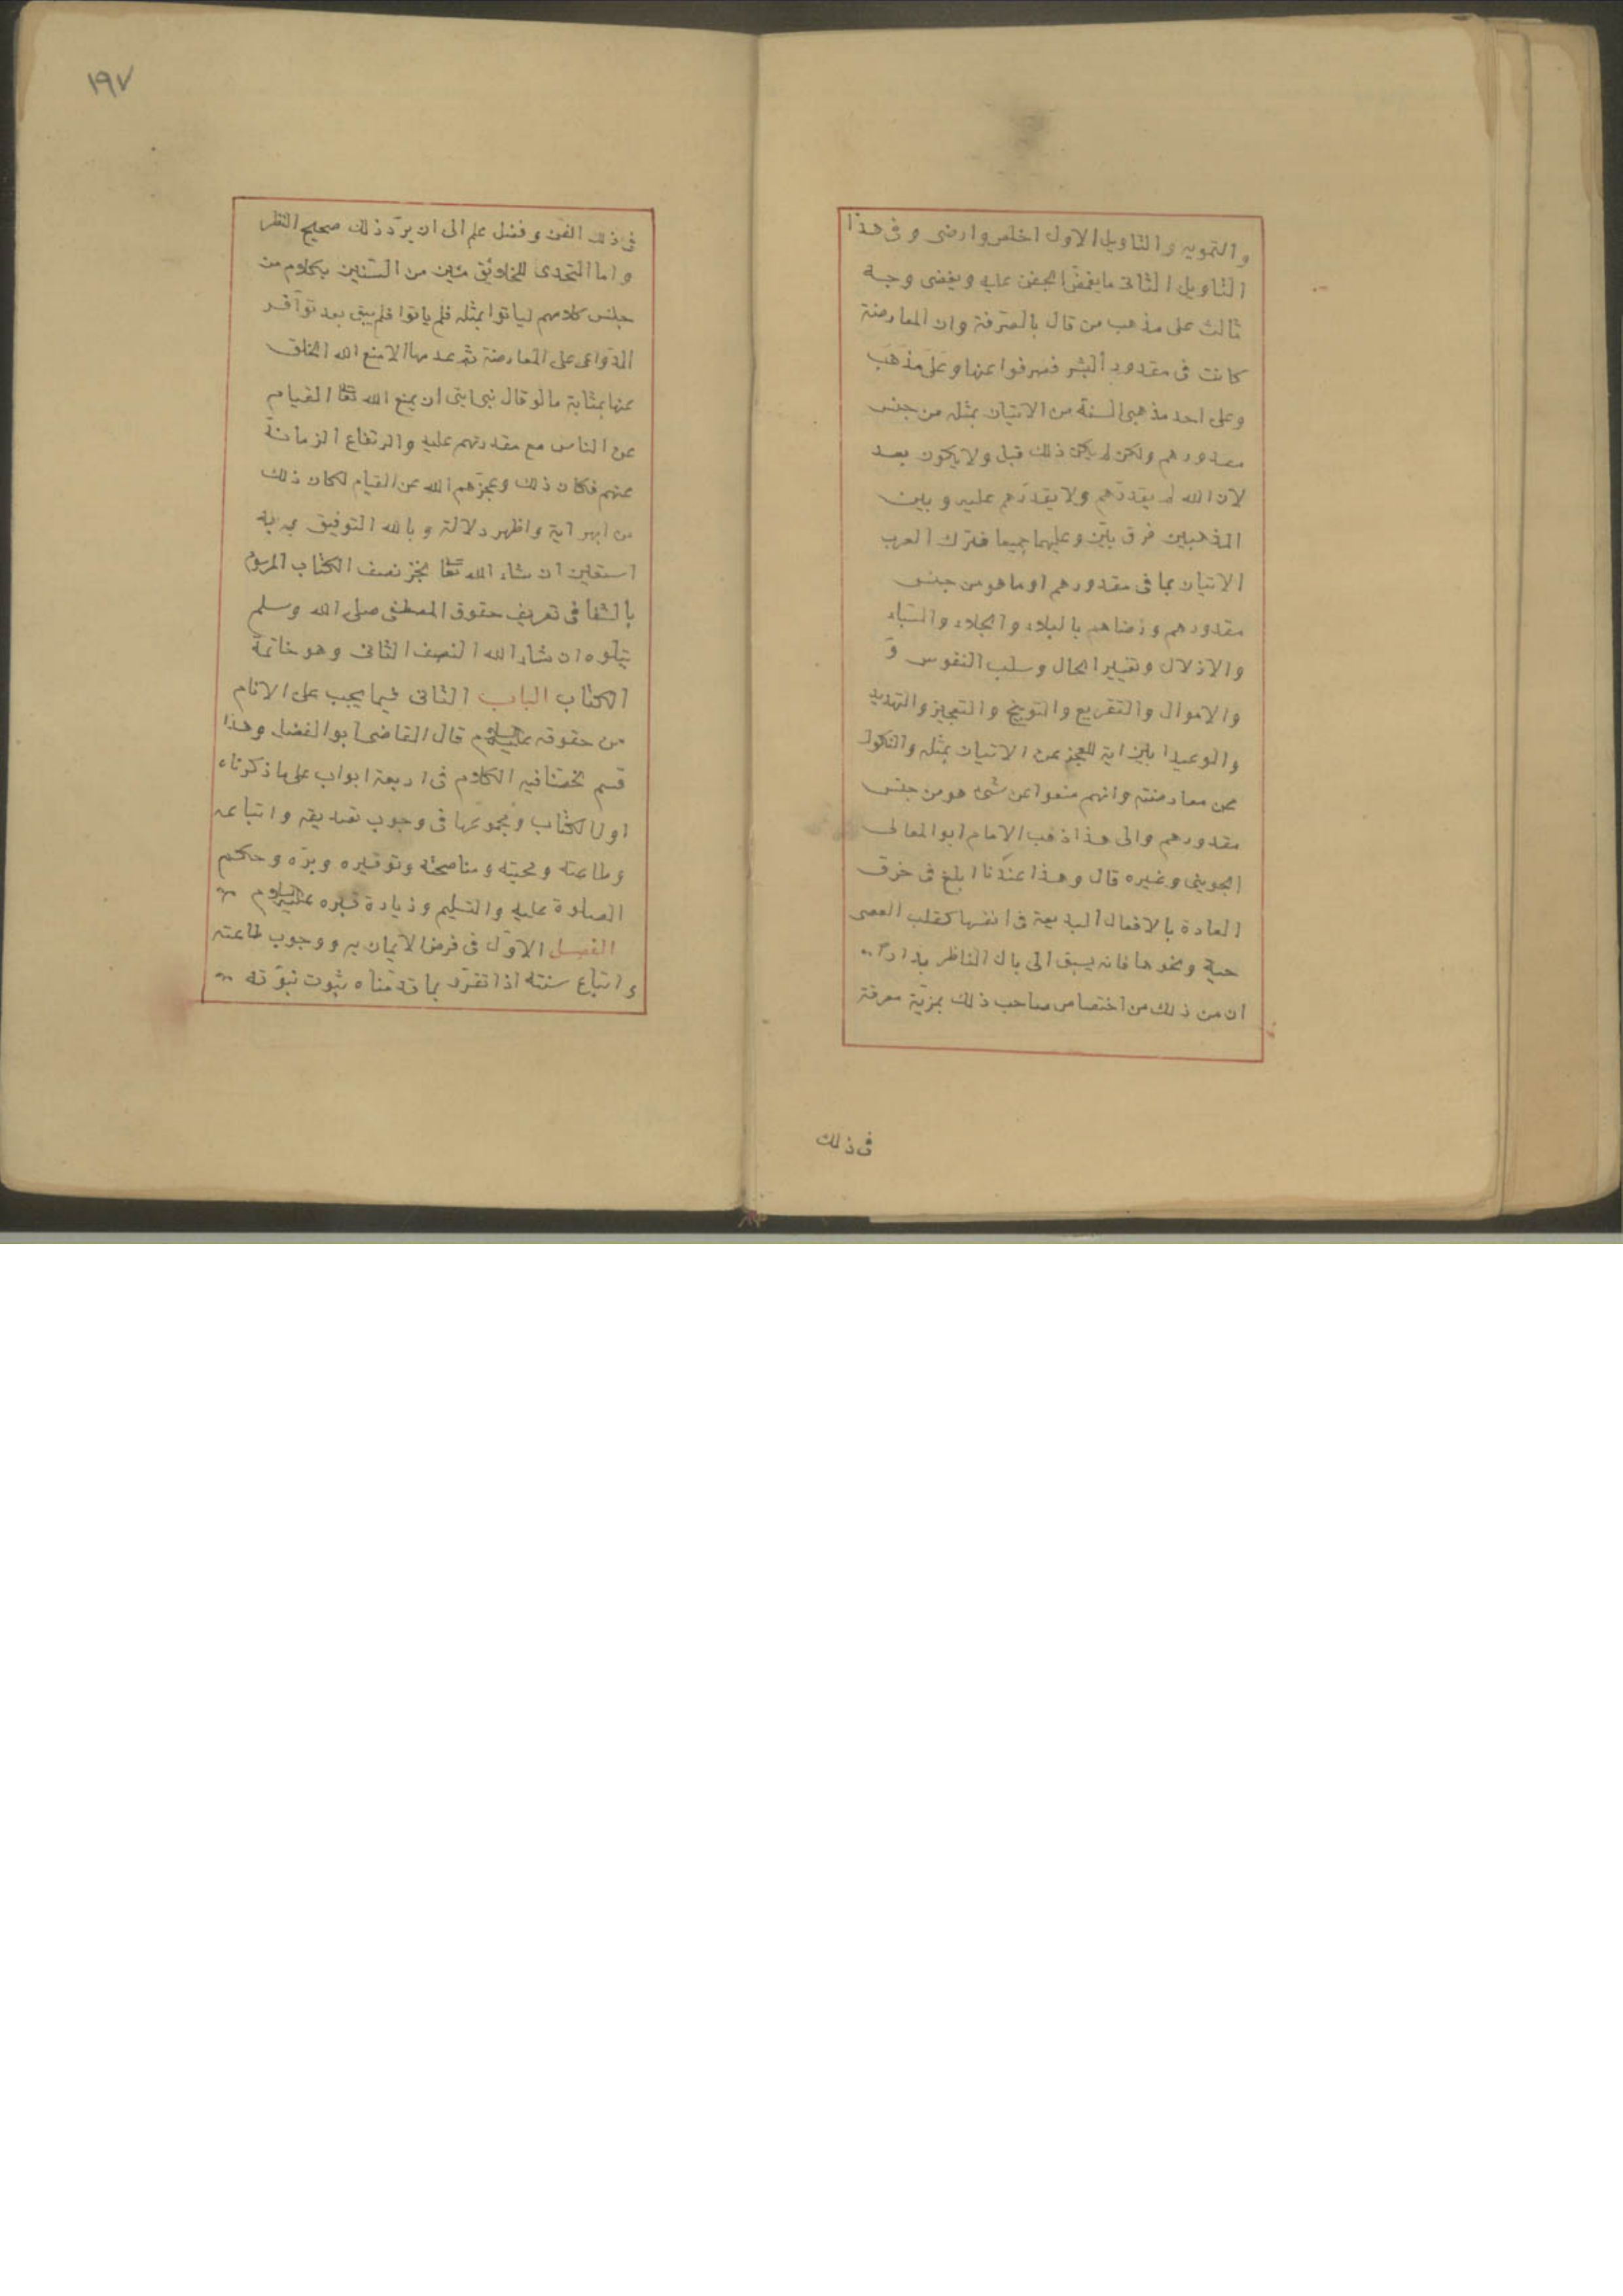 والتمويه والتاويل الاول اخلص وارضى وفى هذا
التاويل الثانى ما يغمض الجفن عليه ويغضى وجه
ثالث على مذهب من قال بالصرفة وان المعارضة
كانت فى مقدور البشر فصرفوا عنها وعلى مذهب
وعلى احد مذهبى السنة من الاتيان بمثله من جنس
مقدورهم ولكن لم يكن ذلك قبل ولا يكون بعد
لان الله لم يقدرهم ولا يقدرهم عليه وبين
المذهبين فرق بيّن وعليهما جميعا فترك العرب
الاتيان بما فى مقدورهم او ما هو من جنس
مقدورهم ورضاهم بالبلاء والجلاء والسّباء
والاذلال وتغيير الحال وسلب النفوس و
والاموال والتقريع والتوبيخ والتعجيز والتهديد
والوعيد ابين اية للعجز عن الاتيان بمثله والنكول
عن معارضته وانهم منعوا عن شئ هو من جنس
مقدورهم والى هذا ذهب الامام ابو المعالى
الجوينى وغيره قال وهذا عندنا ابلغ فى خرق
العادة بالافعال البديعة فى انفسها كقلب العصى
حية ونحوها فانه يسبق الى بال الناظر بدارا
ان من ذلك من اختصاص صاحب ذلك بمزيّة معرفة
فى ذلك
١٩٧
فى ذلك الفن وفضل علم الى ان يردّ ذلك صحيح النظر
واما التحدى للخلائق مئين من السّنين بكلام من
جنس كلامهم لياتوا بمثله فلم ياتوا فلم يبق بعد توافر
الدّواعى على المعارضة ثم عدمها الا منع الله الخلق
عنها بمثابة ما لو قال نبى ايتى ان يمنع الله تعا القيام
عن الناس مع مقدرتهم عليه والرتفاع الزمانة
عنهم فكان ذلك وعجزهم الله عن القيام لكان ذلك
من ابهر اية واظهر دلالة وبالله التوفيق به
استعين ان شاء الله تعا نجز نصف الكتاب
بالشفا فى تعريف حقوق المصطفى صلى الله وسلم
يتلوه ان شاء الله النصف الثانى وهو خاتمة
الكتاب الباب الثانى فيما يجب على الانام
من حقوقه عليه السلام قال القاضى ابو الفضل وهذا
قسم لخصنا فيه الكلام فى اربعة ابواب على ما ذكرناه
اول الكتاب ومجموعها فى وجوب تصديقه واتباعه
وطاعته ومحبته ومناصحته وتوقيره وبرّه وحكم
الصلوة عليه والتسليم وزيارة قبره عليه السلام
الفصل الاوّل فى فرض الايمان به ووجوب طاعته
واتباع سنته اذا تقرّر بما قدّمناه ثبوت نبوّته